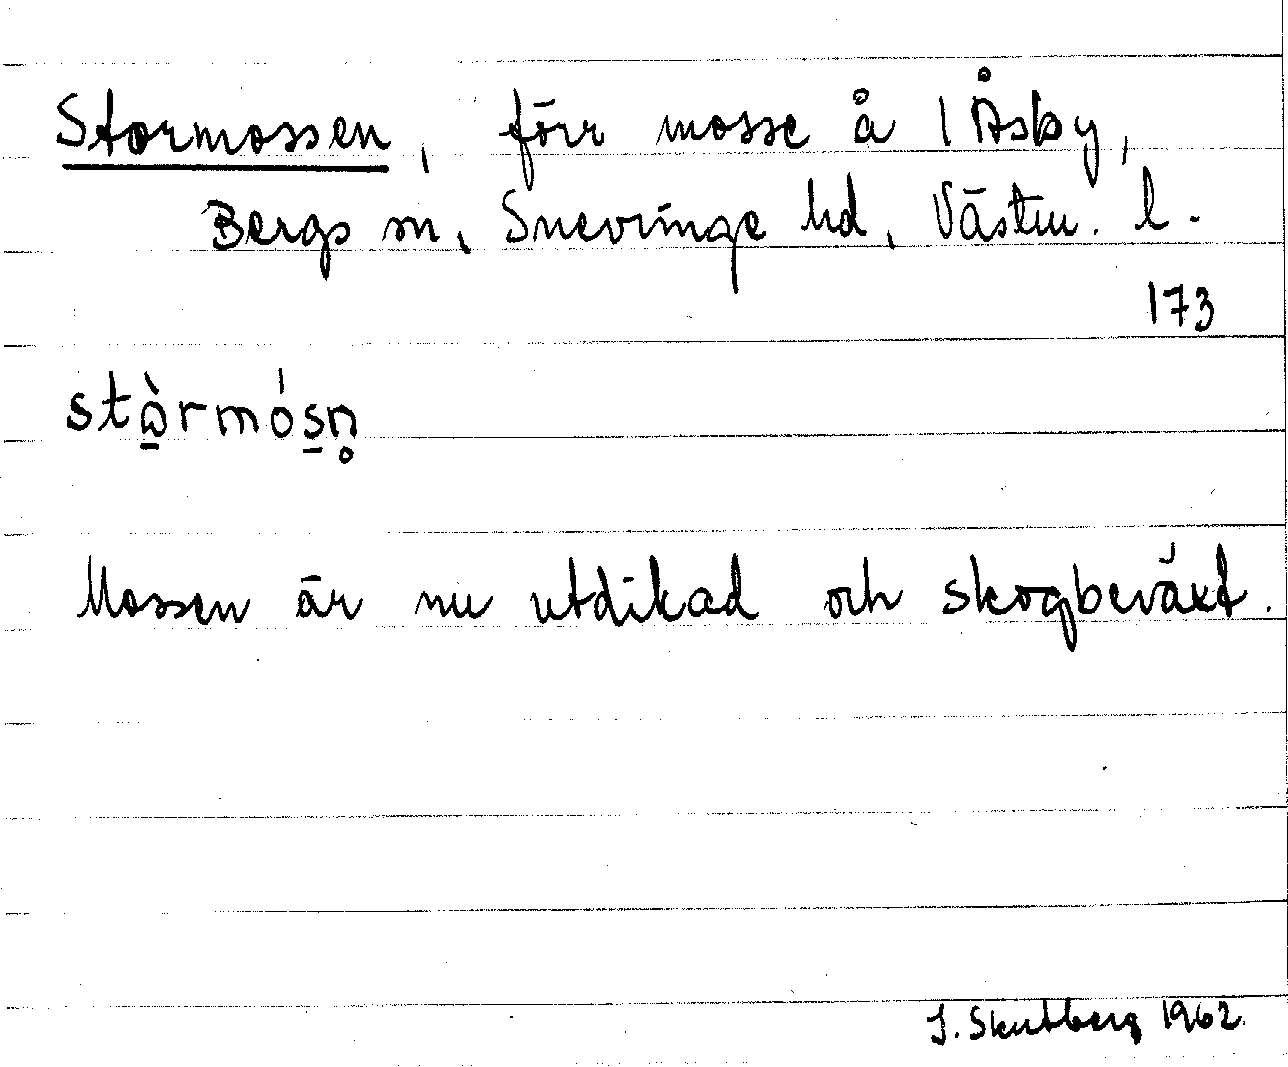 Stormossen, förr mosse å 1 Åsby,
Bergs sn, Snevringe hd, Västm. l.
173
stὼrmósn̥
Mossen är nu utdikad och skogbeväxt.
J. Skutberg 1962.